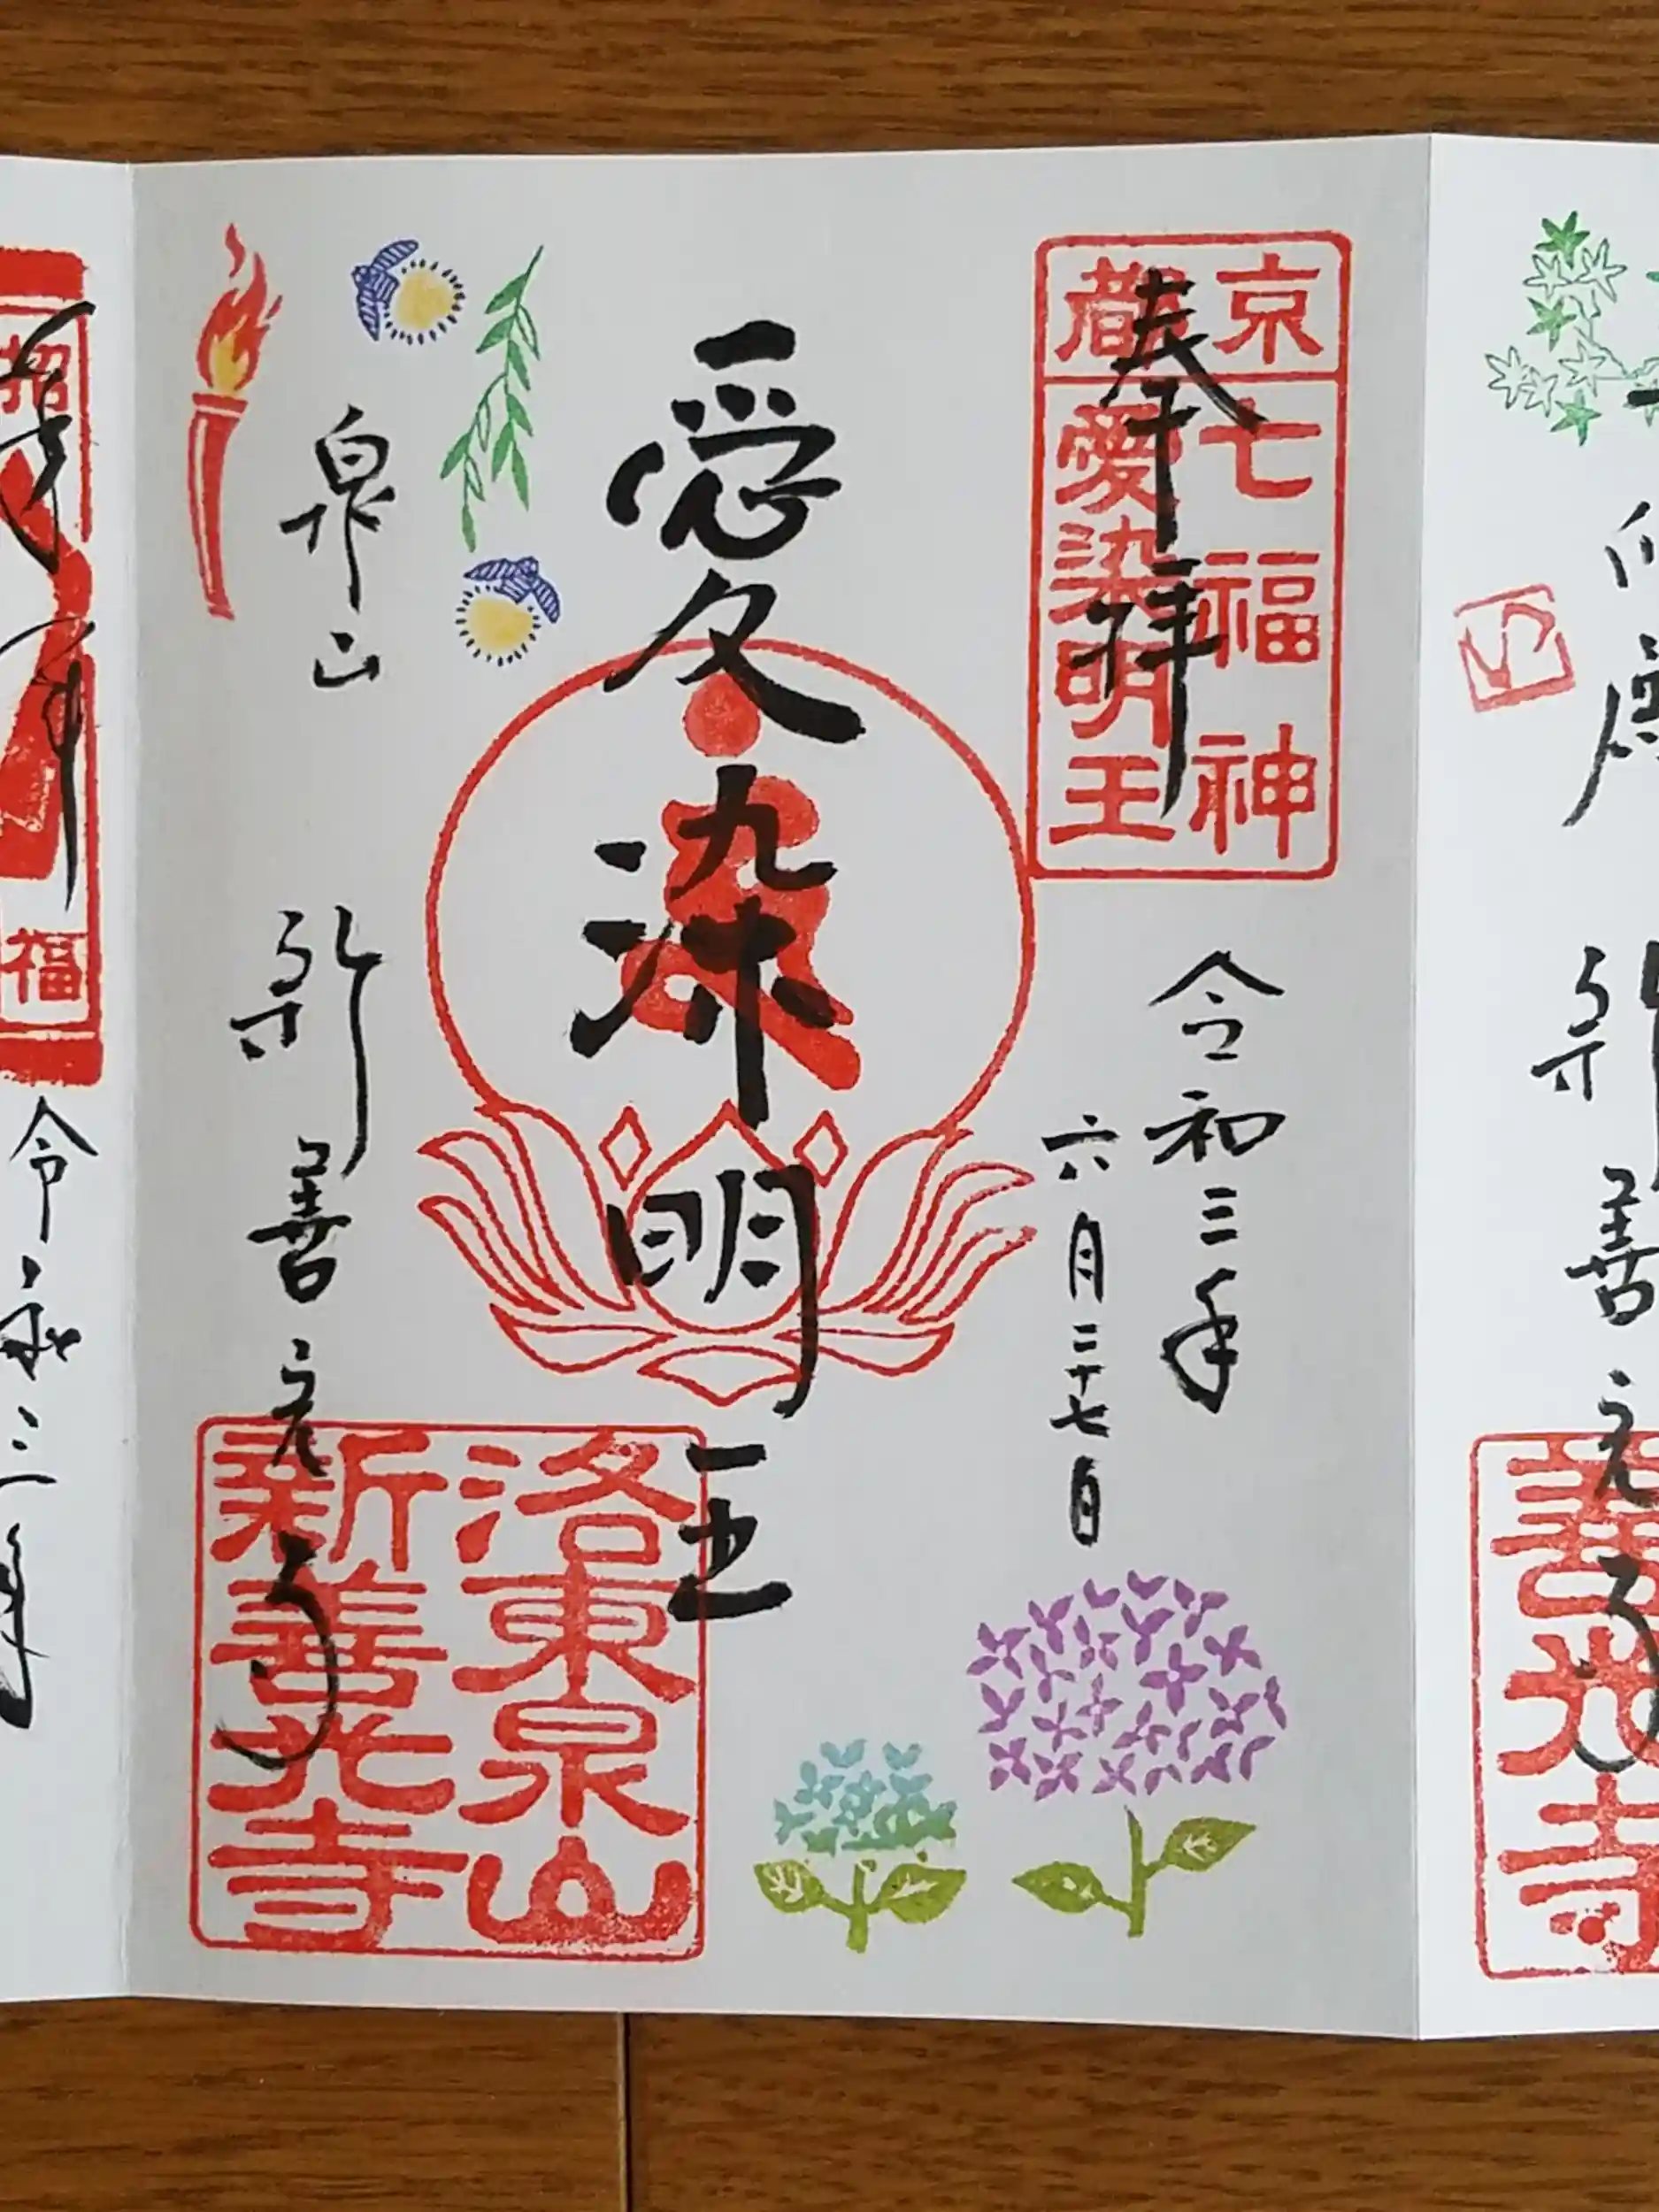 京都
七福神
愛染明王
奉拝
令和三年
六月二十七日
愛染明王
泉山
新善光寺
洛東泉山
新善光寺
福
令和三年
新善光寺
善光寺